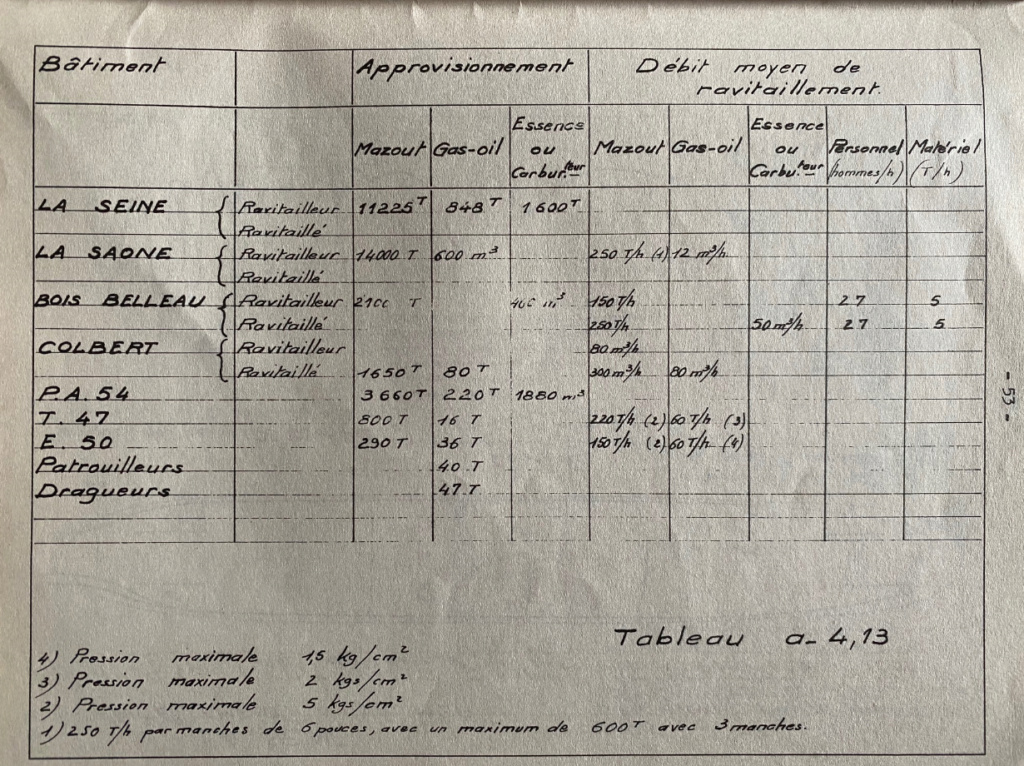 Bâtiment Approvisionnement Débit moyen de ravitaillement.
Mazout Gas-oil Essence ou Carbur.teur Mazout Gas-oil Essence ou Carbu.teur Personnel (hommes/h) Matériel (T/h)
LA SEINE { Ravitailleur 11225 T 848 T 1600 T
Ravitaillé
LA SAONE { Ravitailleur 14000 T 600 m³ 250 T/h (1) 12 m³/h
Ravitaillé
BOIS BELLEAU { Ravitailleur 2100 T m³ 150 T/h 27 5
Ravitaillé 250 T/h 50 m³/h 27 5
COLBERT { Ravitailleur 80 m³/h
Ravitaillé 1650 T 80 T 300 m³/h 80 m³/h
P.A. 54 3660 T 220 T 1880 m³
T. 47 800 T 16 T 220 T/h (2) 60 T/h (3)
E. 50 290 T 36 T 150 T/h (2) 60 T/h (4)
Patrouilleurs 40 T
Dragueurs 47 T
- 53 -
Tableau a- 4,13
4) Pression maximale 1,5 kg/cm²
3) Pression maximale 2 kgs/cm²
2) Pression maximale 5 kgs/cm²
1) 250 T/h par manches de 6 pouces, avec un maximum de 600 T avec 3 manches.